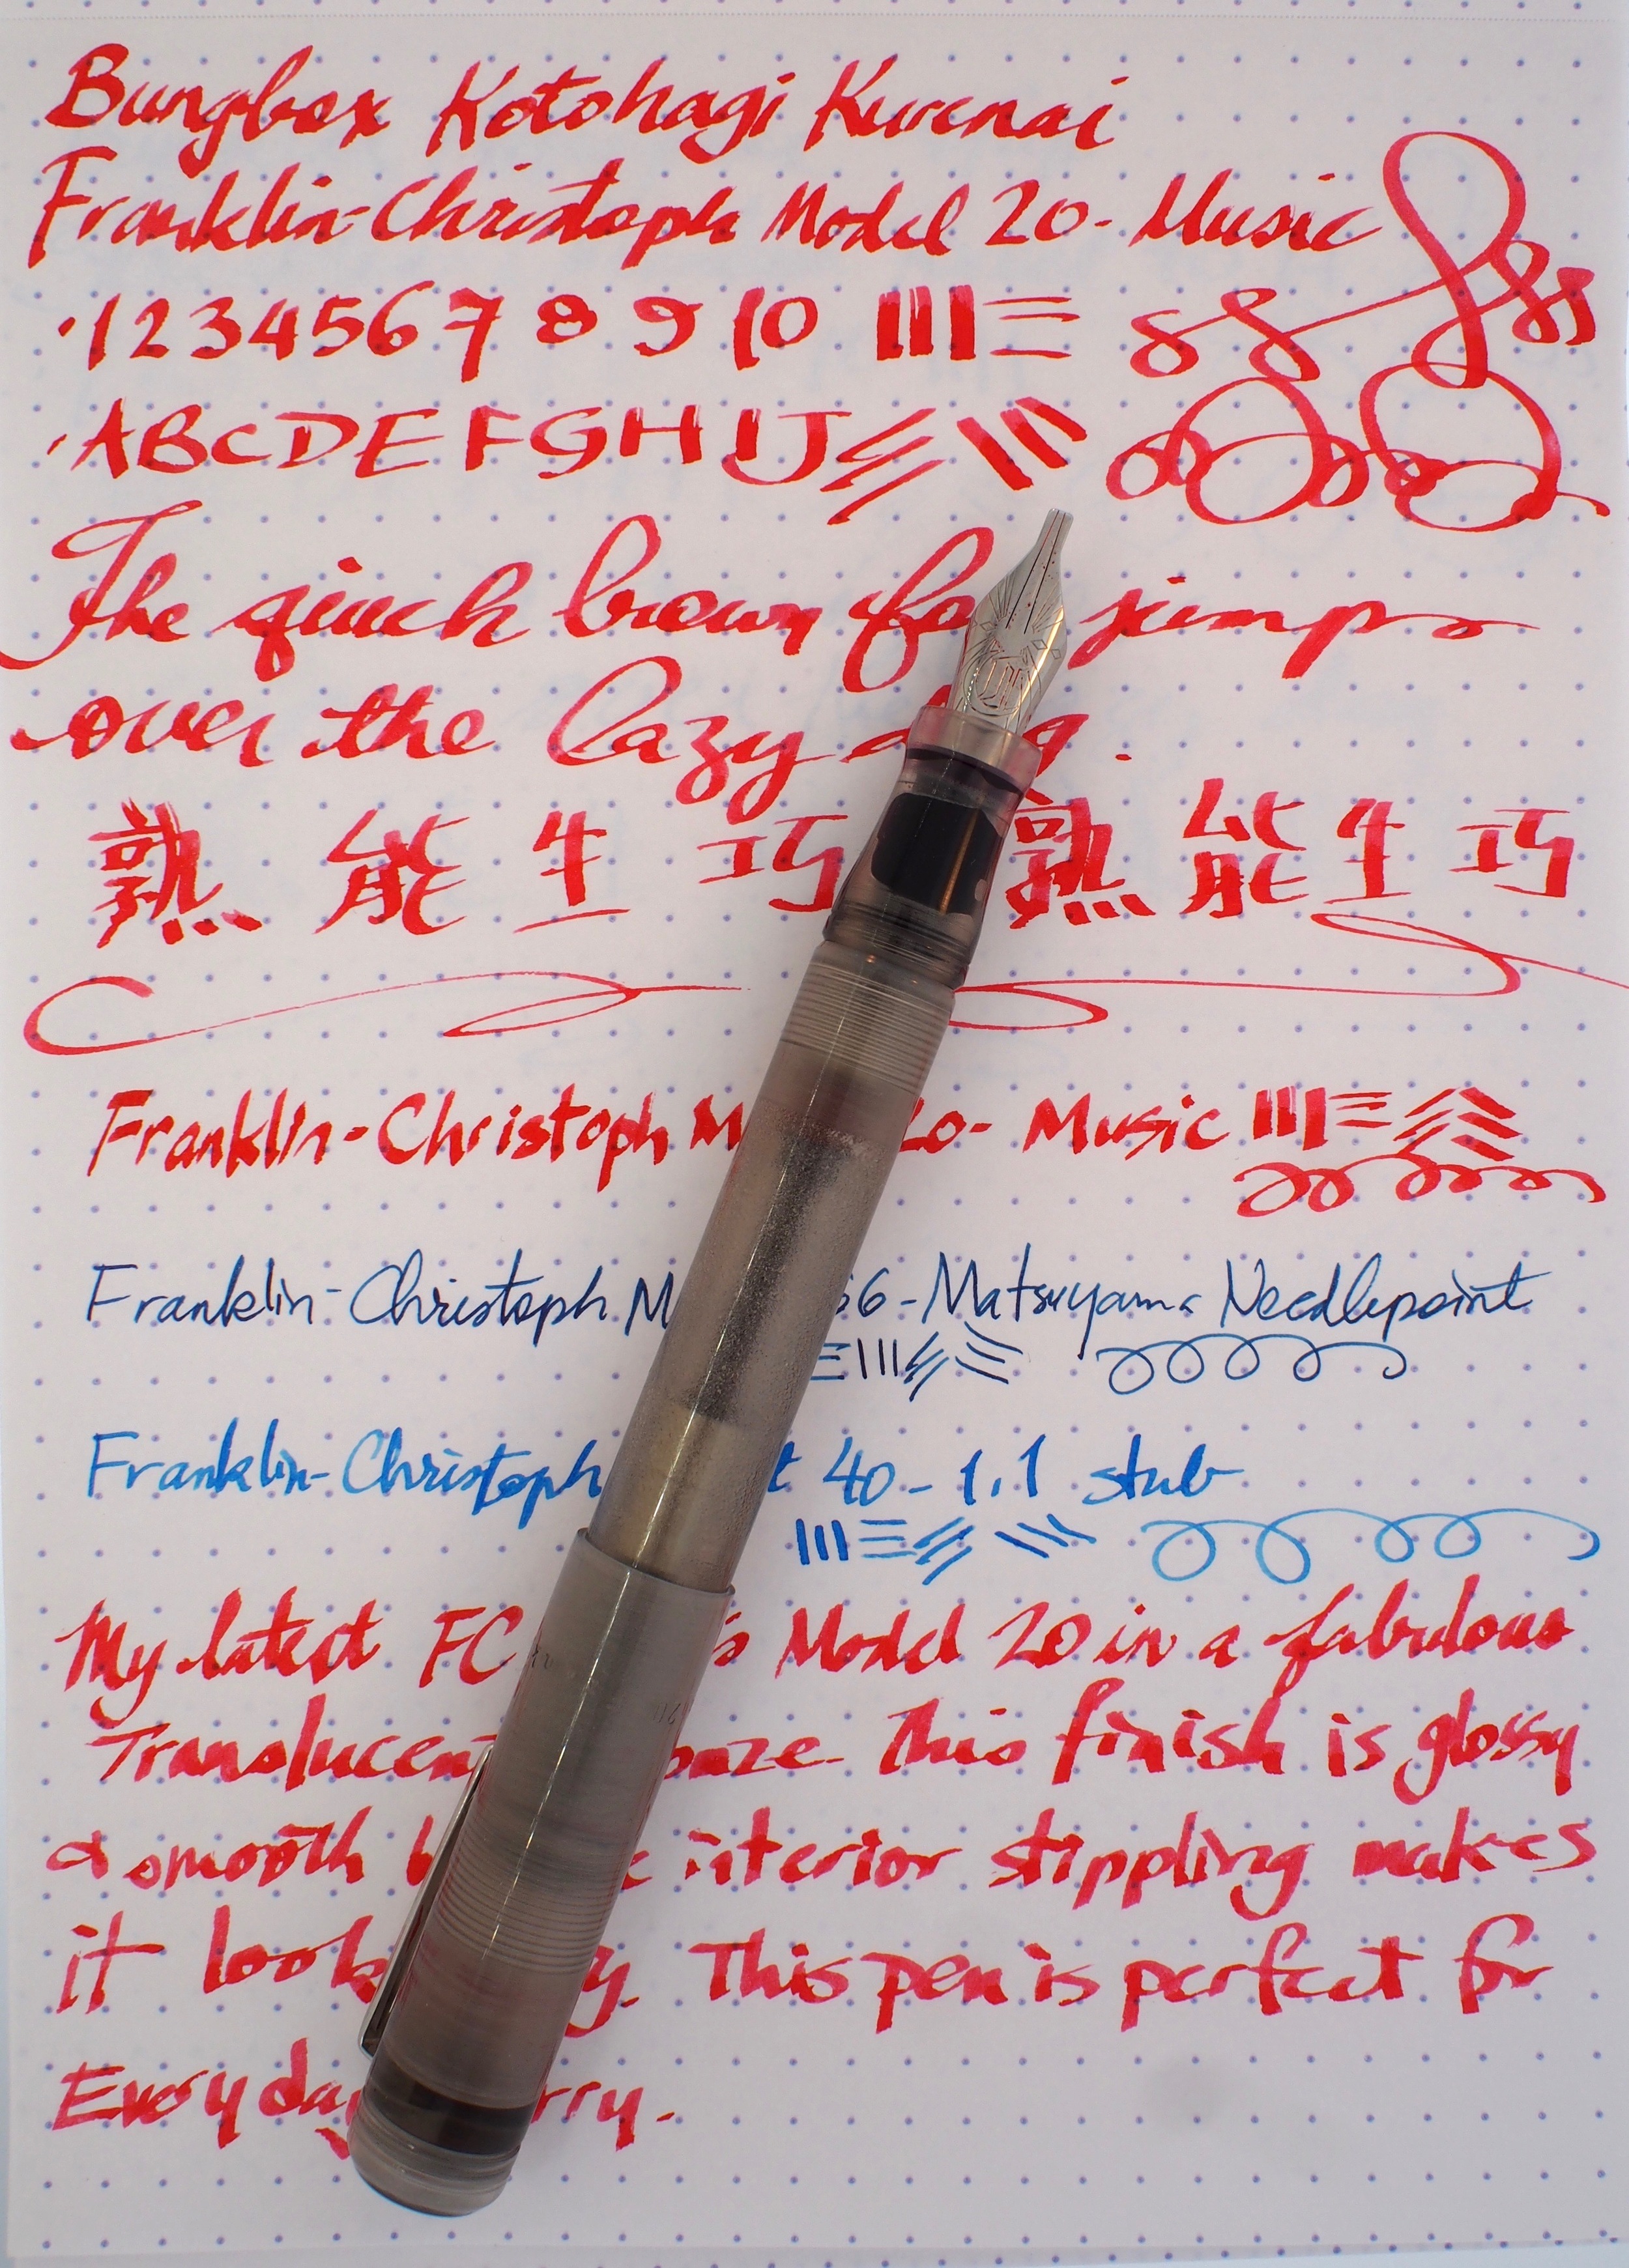 Bungbox Kotohagi Kurenai
Franklin-Christoph Model 20 - Music
1 2 3 4 5 6 7 8 9 10
A B C D E F G H I J
The quick brown jumps
over the lazy
熟 能 生 巧 熟 能 生 巧
Franklin-Christoph 20 - Music
Franklin-Christoph 66 - Matsuyama Needlepoint
Franklin-Christoph 40 - 1.1 stub
My latest FC is Model 20 in a fabulous
Translucent This finish is glossy
& smooth interior stippling makes
it look This pen is perfect for
Every day